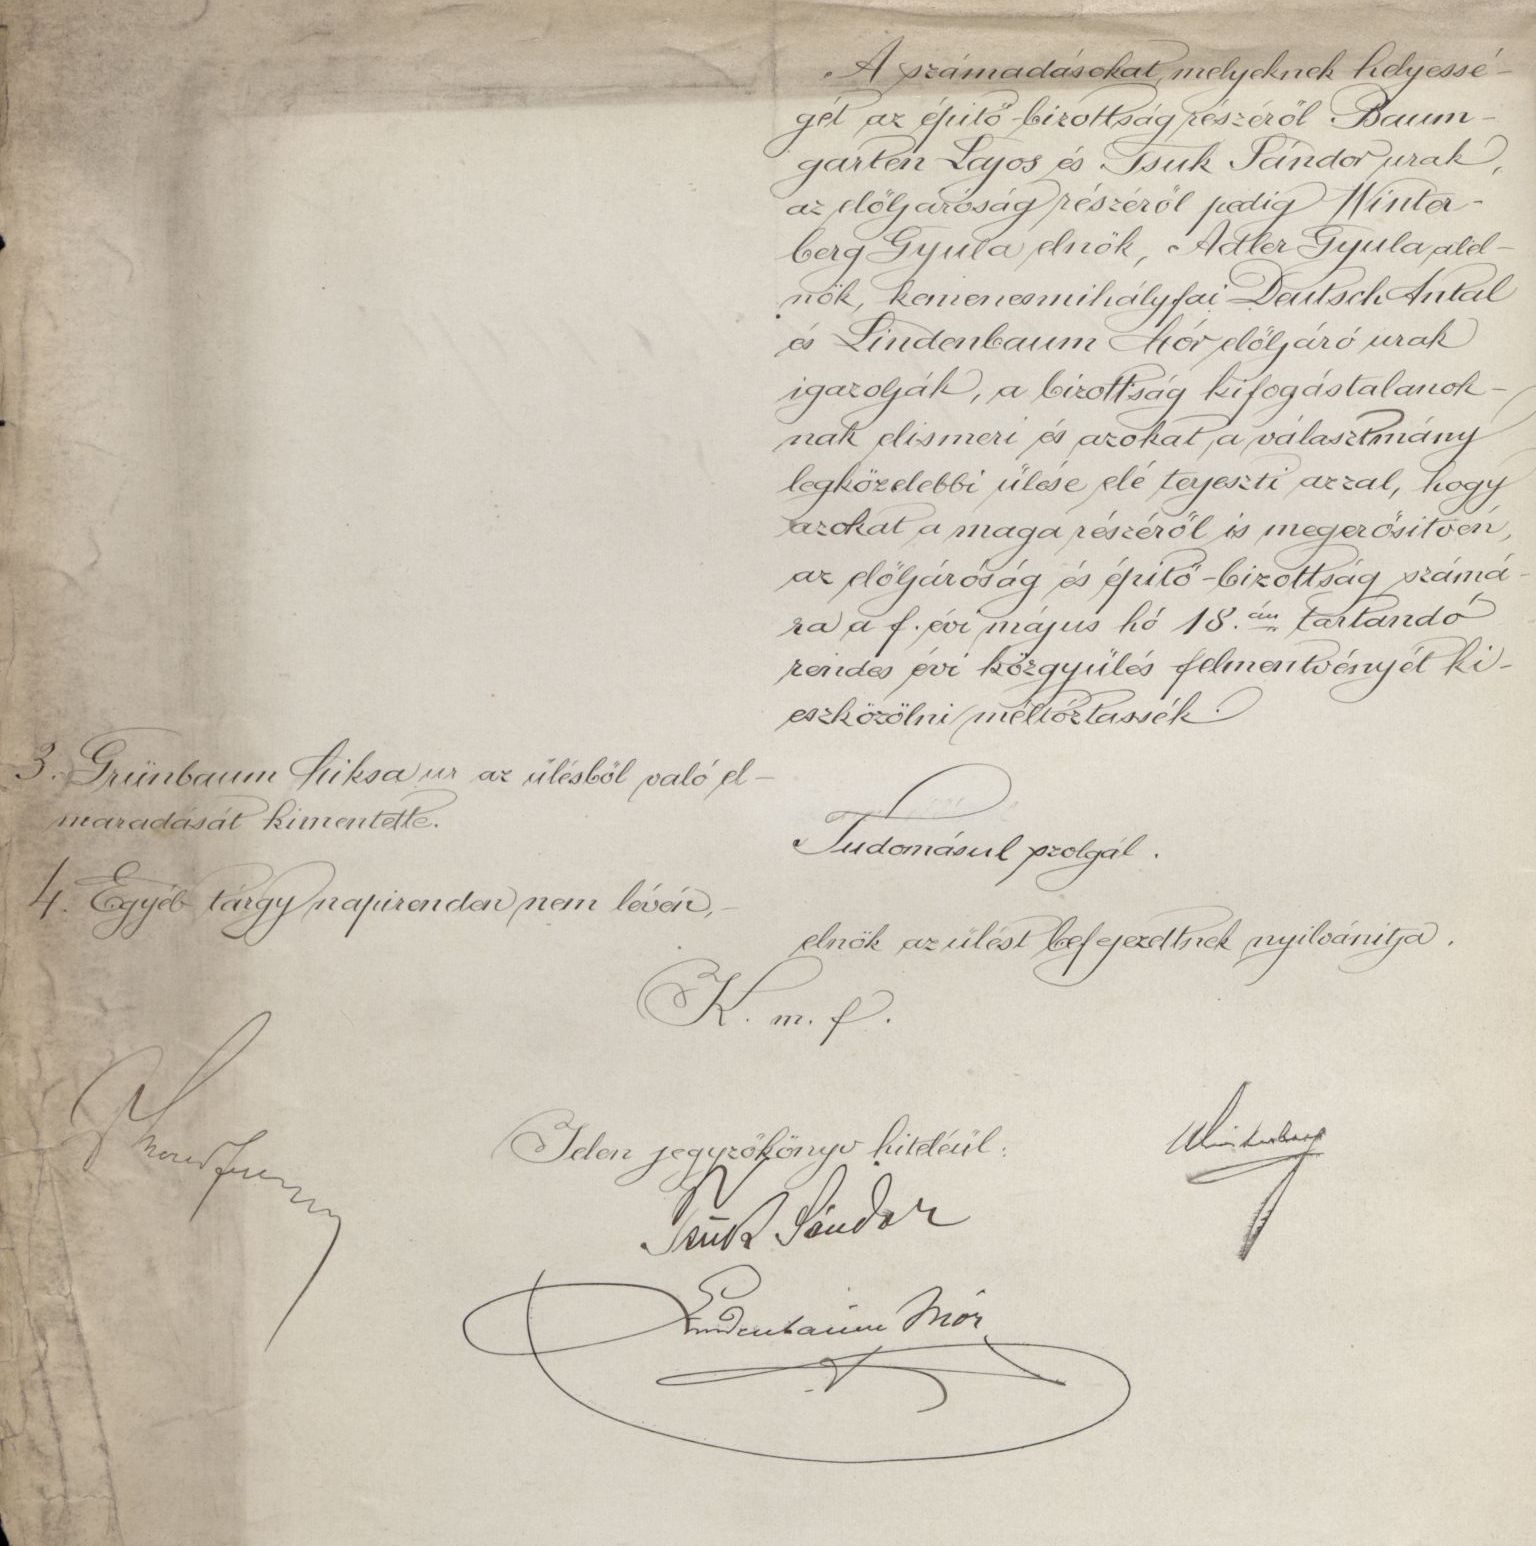 A számadásokat, melyeknek helyessé-
gét az építő-bizottság részéről Baum-
garten Lajos és Tsuk Sándor urak,
az elöljáróság részéről pedig Winter-
berg Gyula elnök, Adler Gyula alel-
nök, kemenesmihályfai Deutsch Antal
és Lindenbaum Mór elöljáró urak
igazolják, a bizottság kifogástalanok-
nak elismeri és azokat a választmány
legközelebbi ülése elé terjeszti azzal, hogy
azokat a maga részéről is megerősitvén,
az elöljáróság és építő-bizottság számá-
ra a f. évi május hó 18.án tartandó
rendes évi közgyülés felmentvényét ki-
eszközölni méltóztassék.
3. Grünbaum Miksa ur az ülésből való el-
maradását kimentette.
Tudomásul szolgál.
4. Egyéb tárgy napirenden nem lévén, -
elnök az ülést befejezettnek nyilvánitja.
K. m. f.
Jelen jegyzőkönyv hiteléül:
Winterberg
Tsuk Sándor
Lindenbaum Mór